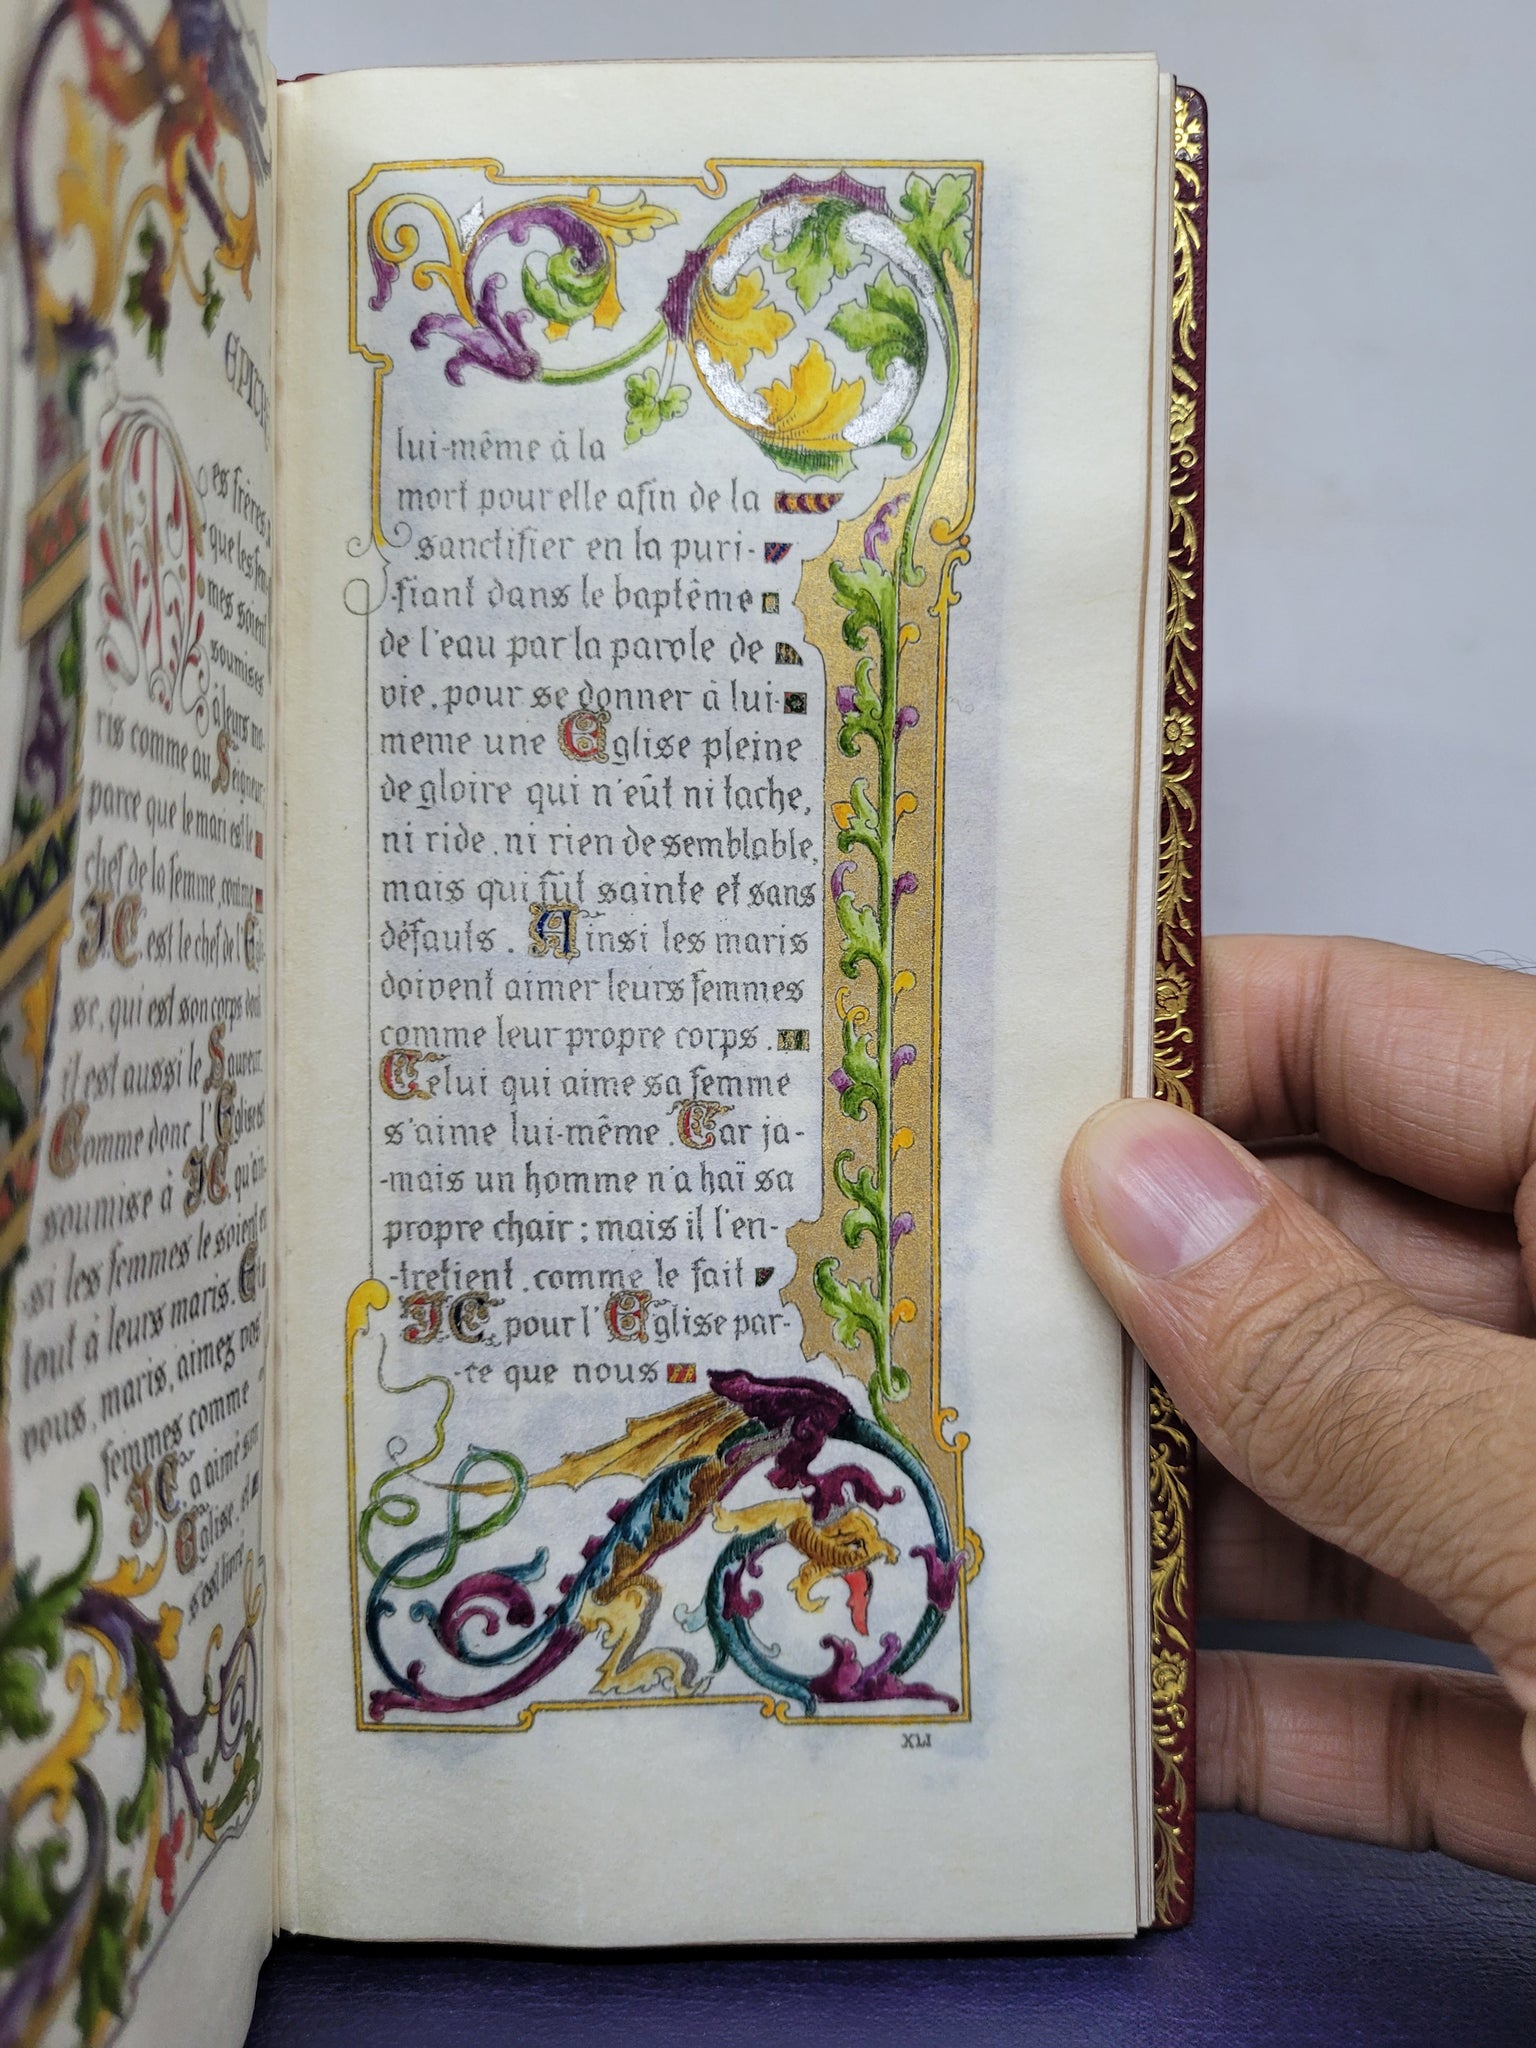 es frères,
que les fem-
mes soient
soumises
à leurs ma-
ris comme au Seigneur
parce que le mari est le
chef de la femme, comme
J.C. est le chef de l'Egli-
se, qui est son corps dont
il est aussi le Sauveur.
Comme donc l'Eglise est
soumise à J.C. qu'ain-
-si les femmes le soient en
tout à leurs maris. Et
vous, maris, aimez vos
femmes comme
J.C. a aimé son
Eglise, et
s'est livré
lui-même à la
mort pour elle afin de la
sanctifier en la puri-
-fiant dans le baptême
de l'eau par la parole de
vie, pour se donner à lui-
meme une Eglise pleine
de gloire qui n'eût ni tache,
ni ride, ni rien de semblable,
mais qui fût sainte et sans
défauts. Ainsi les maris
doivent aimer leurs femmes
comme leur propre corps.
Celui qui aime sa femme
s'aime lui-même. Car ja-
-mais un homme n'a haï sa
propre chair; mais il l'en-
-tretient, comme le fait
J.C. pour l'Eglise par-
-ce que nous
XLI